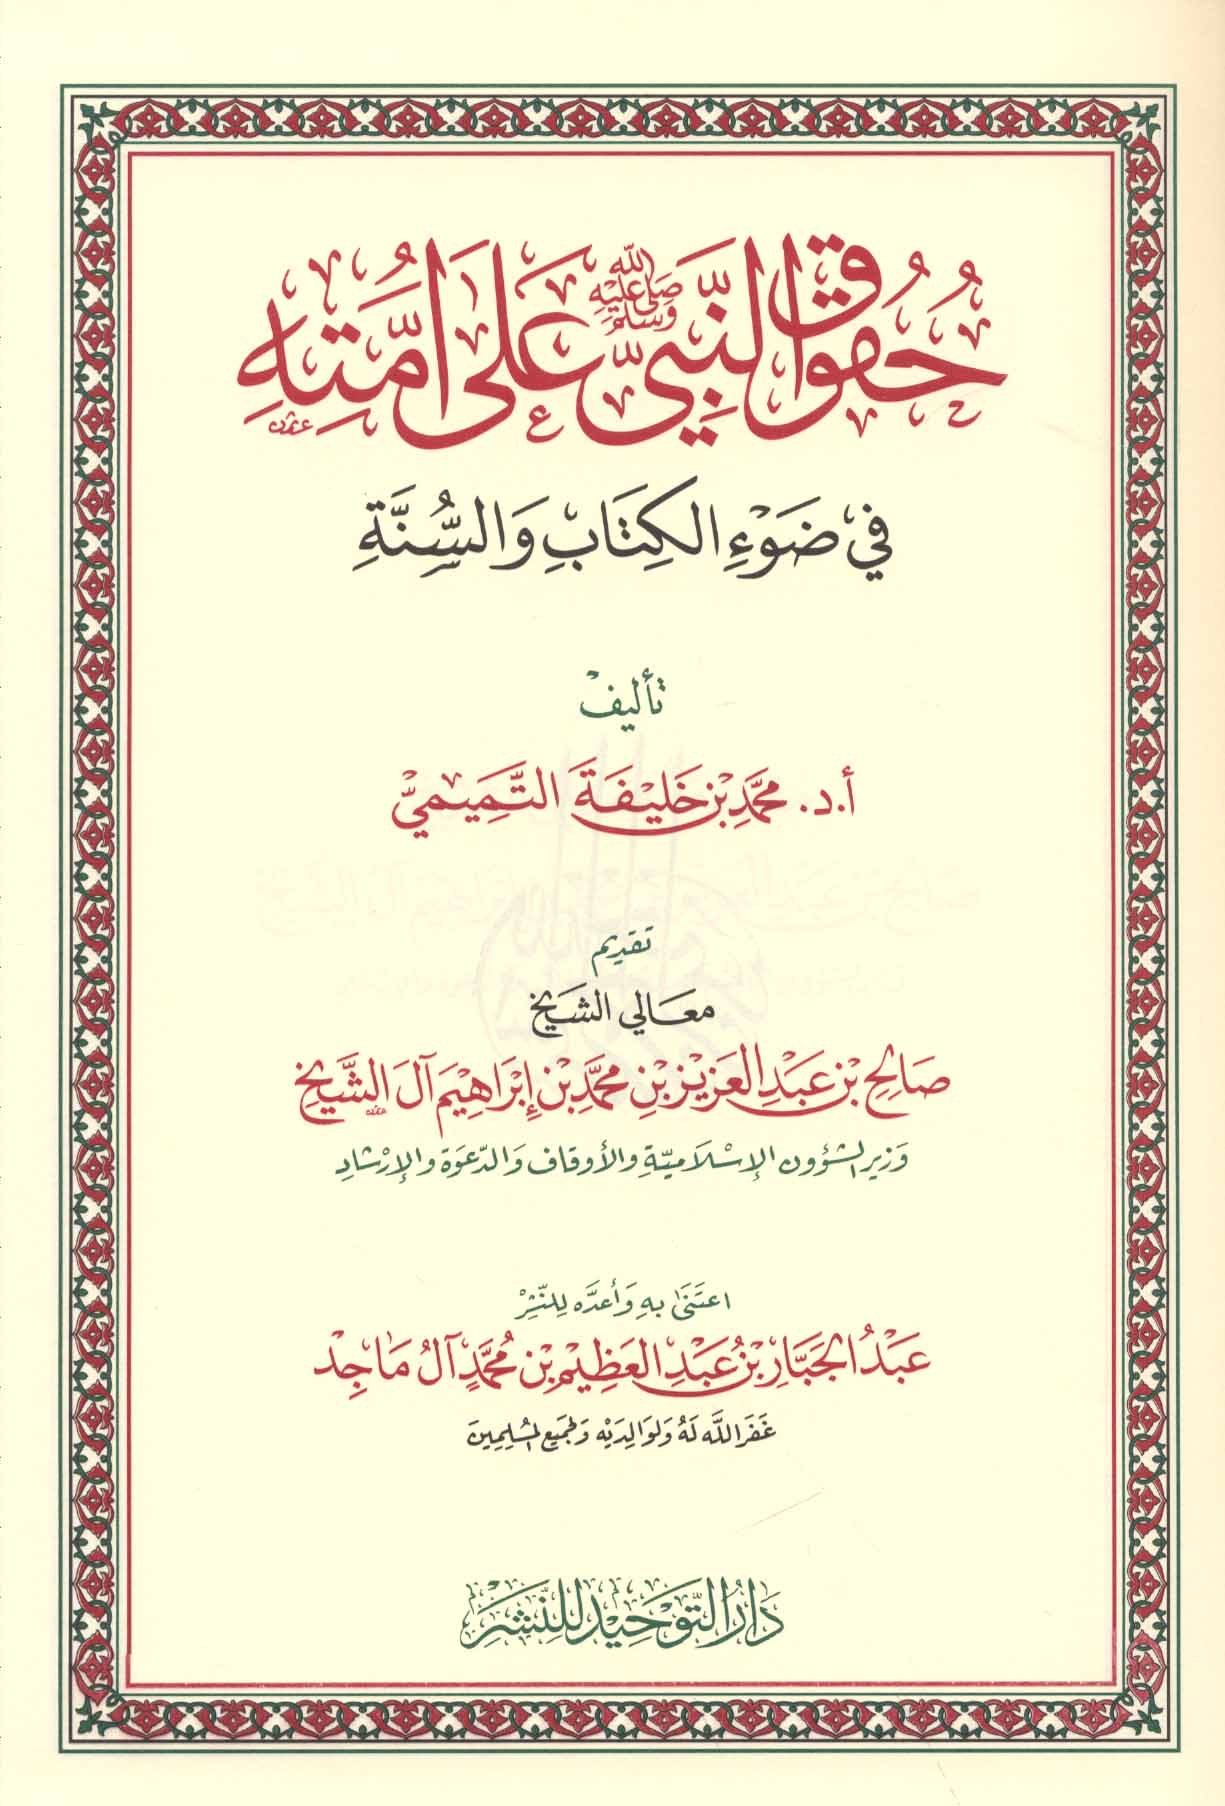 حُقُوقُ النَّبِيِّ صَلَّى اللَّهُ عَلَيْهِ وَسَلَّمَ عَلَى أُمَّتِهِ
فِي ضَوْءِ الْكِتَابِ وَالسُّنَّةِ
تأليف
أ.د. مُحَمَّد بْن خَلِيفَة التَّمِيمِيّ
تقديم
معالي الشيخ
صَالِح بْن عَبْد الْعَزِيز بْنِ مُحَمَّد بْن إِبْرَاهِيم آل الشَّيْخ
وزير الشؤون الإسلاميّة والأوقاف والدّعوة والإرشاد
اعتَنَى بِهِ وَأعدَّه لِلنَّشْرِ
عَبْدُ الْجَبَّار بْنُ عَبْدِ الْعَظِيمِ بْن مُحَمَّدٍ آلُ مَاجِدْ
غَفَرَ اللَّه لَهُ وَلِوَالِدَيْهِ وَلِجَمِيعِ الْمُسْلِمِينَ
دَارُ التَّوْحِيدِ لِلنَّشْرِ